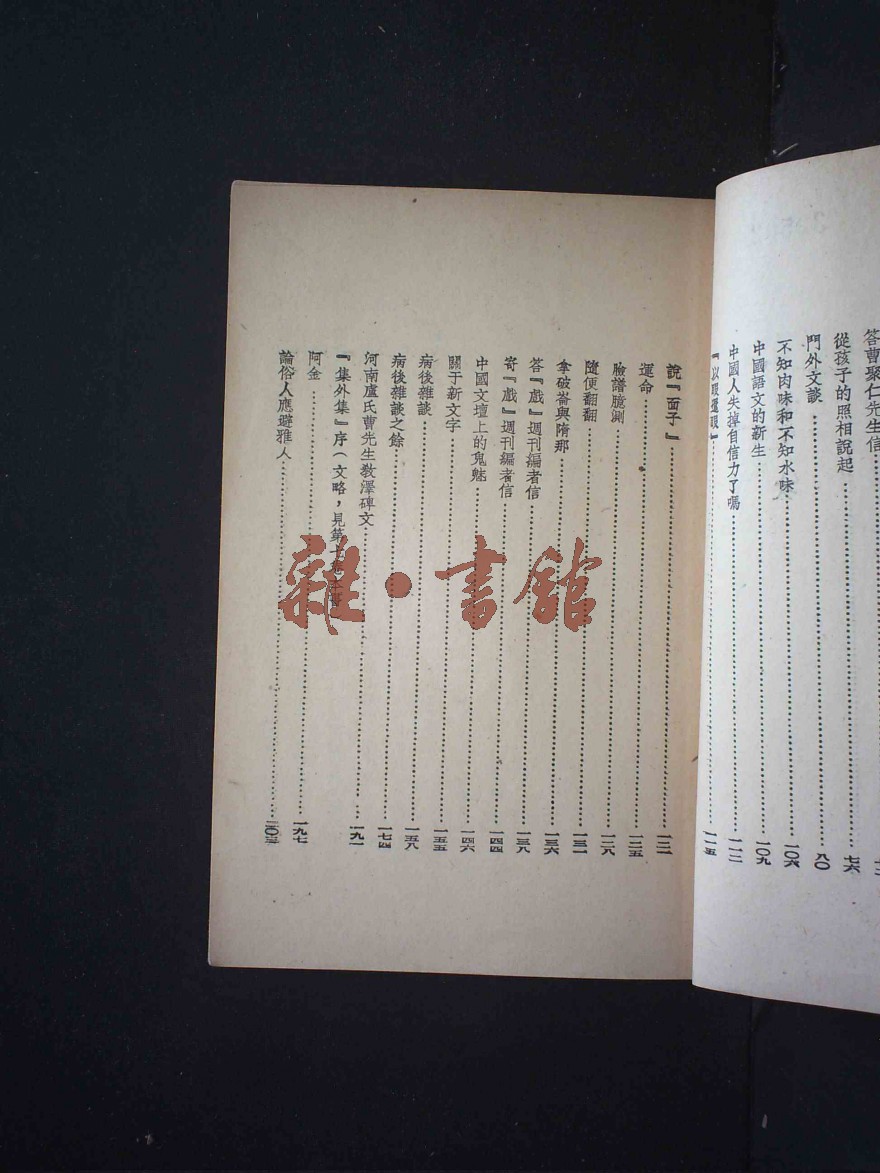 答曹聚仁先生信
從孩子的照相說起……七六
門外文談……八〇
不知肉味和不知水味……一〇六
中國語文的新生……一〇九
中國人失掉自信力了嗎……一一二
『以眼還眼』……一一五
說『面子』……一二一
運命……一二五
臉譜臆測……一二八
隨便翻翻……一三一
拿破崙與隋那……一三六
答『戲』週刊編者信……一三八
寄『戲』週刊編者信……一四四
中國文壇上的鬼魅……一四六
關于新文字……一五五
病後雜談……一五八
病後雜談之餘……一七四
河南盧氏曹先生教澤碑文……一九一
『集外集』序(文略，見第
阿金……一九七
論俗人應避雅人……二〇
雜·書館